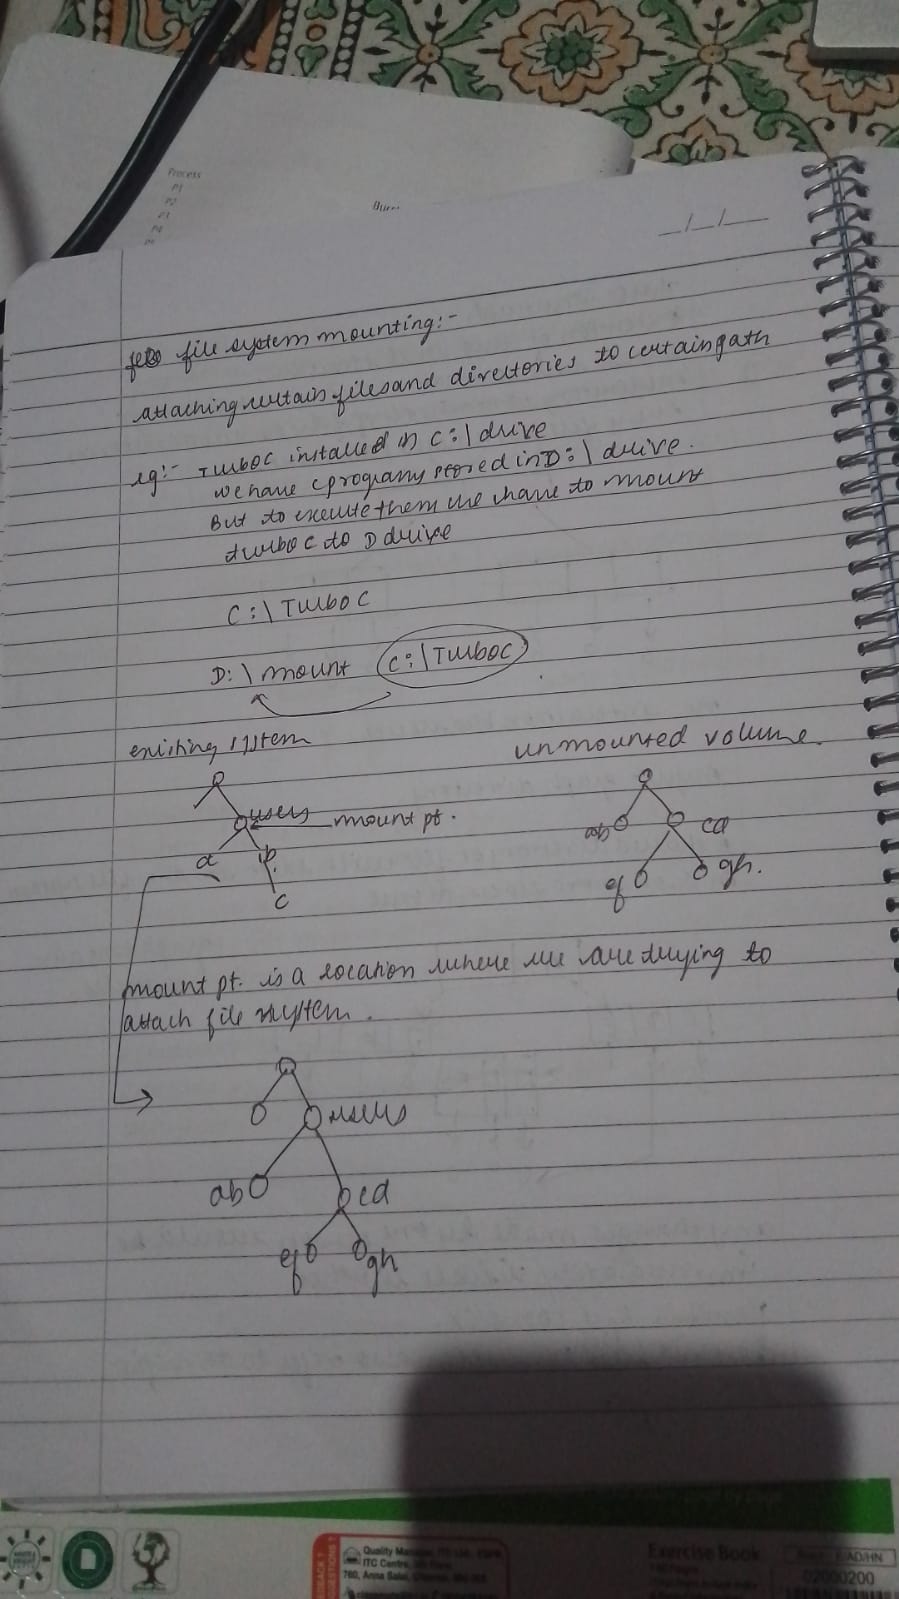 Process
P1
P2
P3
P4
_/_/_
file system mounting:-
attaching certain files and directories to certain path
eg:- TurboC installed in C:\ drive
we have c programs stored in D:\ drive.
But to execute them we have to mount
turbo c to D drive
C:\TurboC
D:\mount C:\TurboC
existing system
unmounted volume.
users mount pt.
a b
c
ab cd
ef gh.
mount pt. is a location where we are trying to
attach file system.
users
ab cd
ef gh
Quality Manager,
ITC Centre,
760, Anna Salai,
Exercise Book
02000200